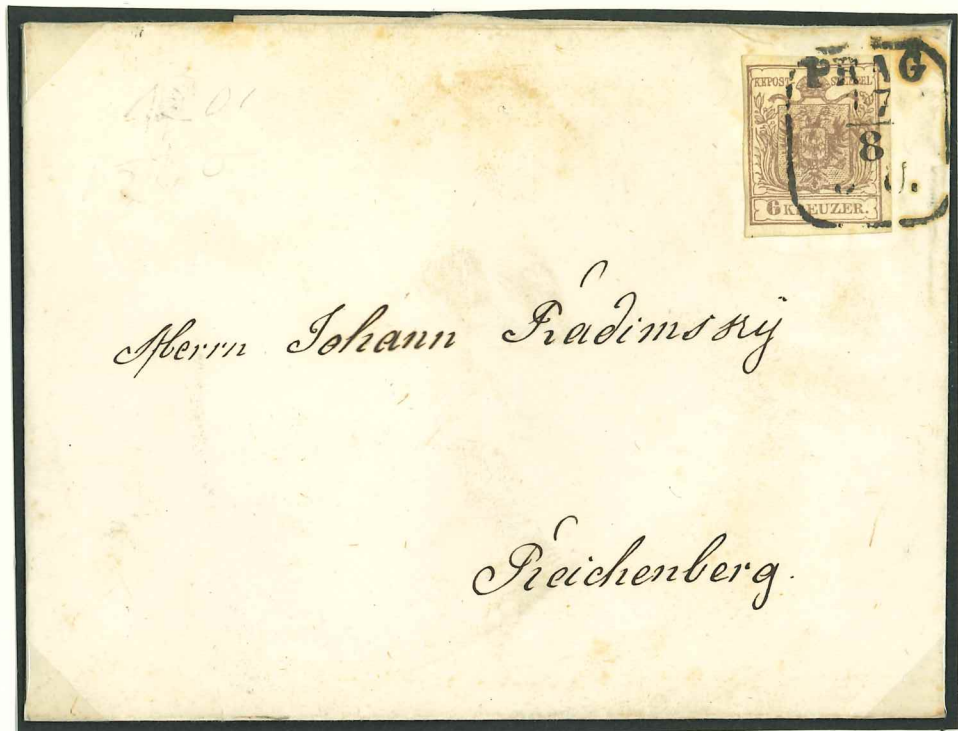 PRAG
KKPOST-STEMPEL
17
8
6 KREUZER.
Herrn Johann Radimský
Reichenberg.